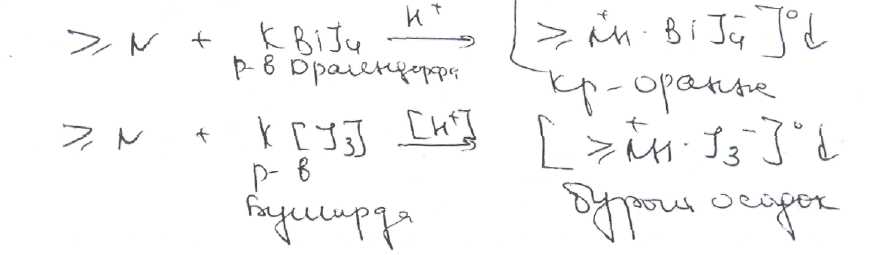 ≥N + KBiJ₄ —H⁺→ [≥N⁺H · BiJ₄⁻]°↓
р-в Драгендорфа кр-оранж
≥N + K[J₃] —[H⁺]→ [≥N⁺H · J₃⁻]°↓
р-в
Бушарда бурый осадок